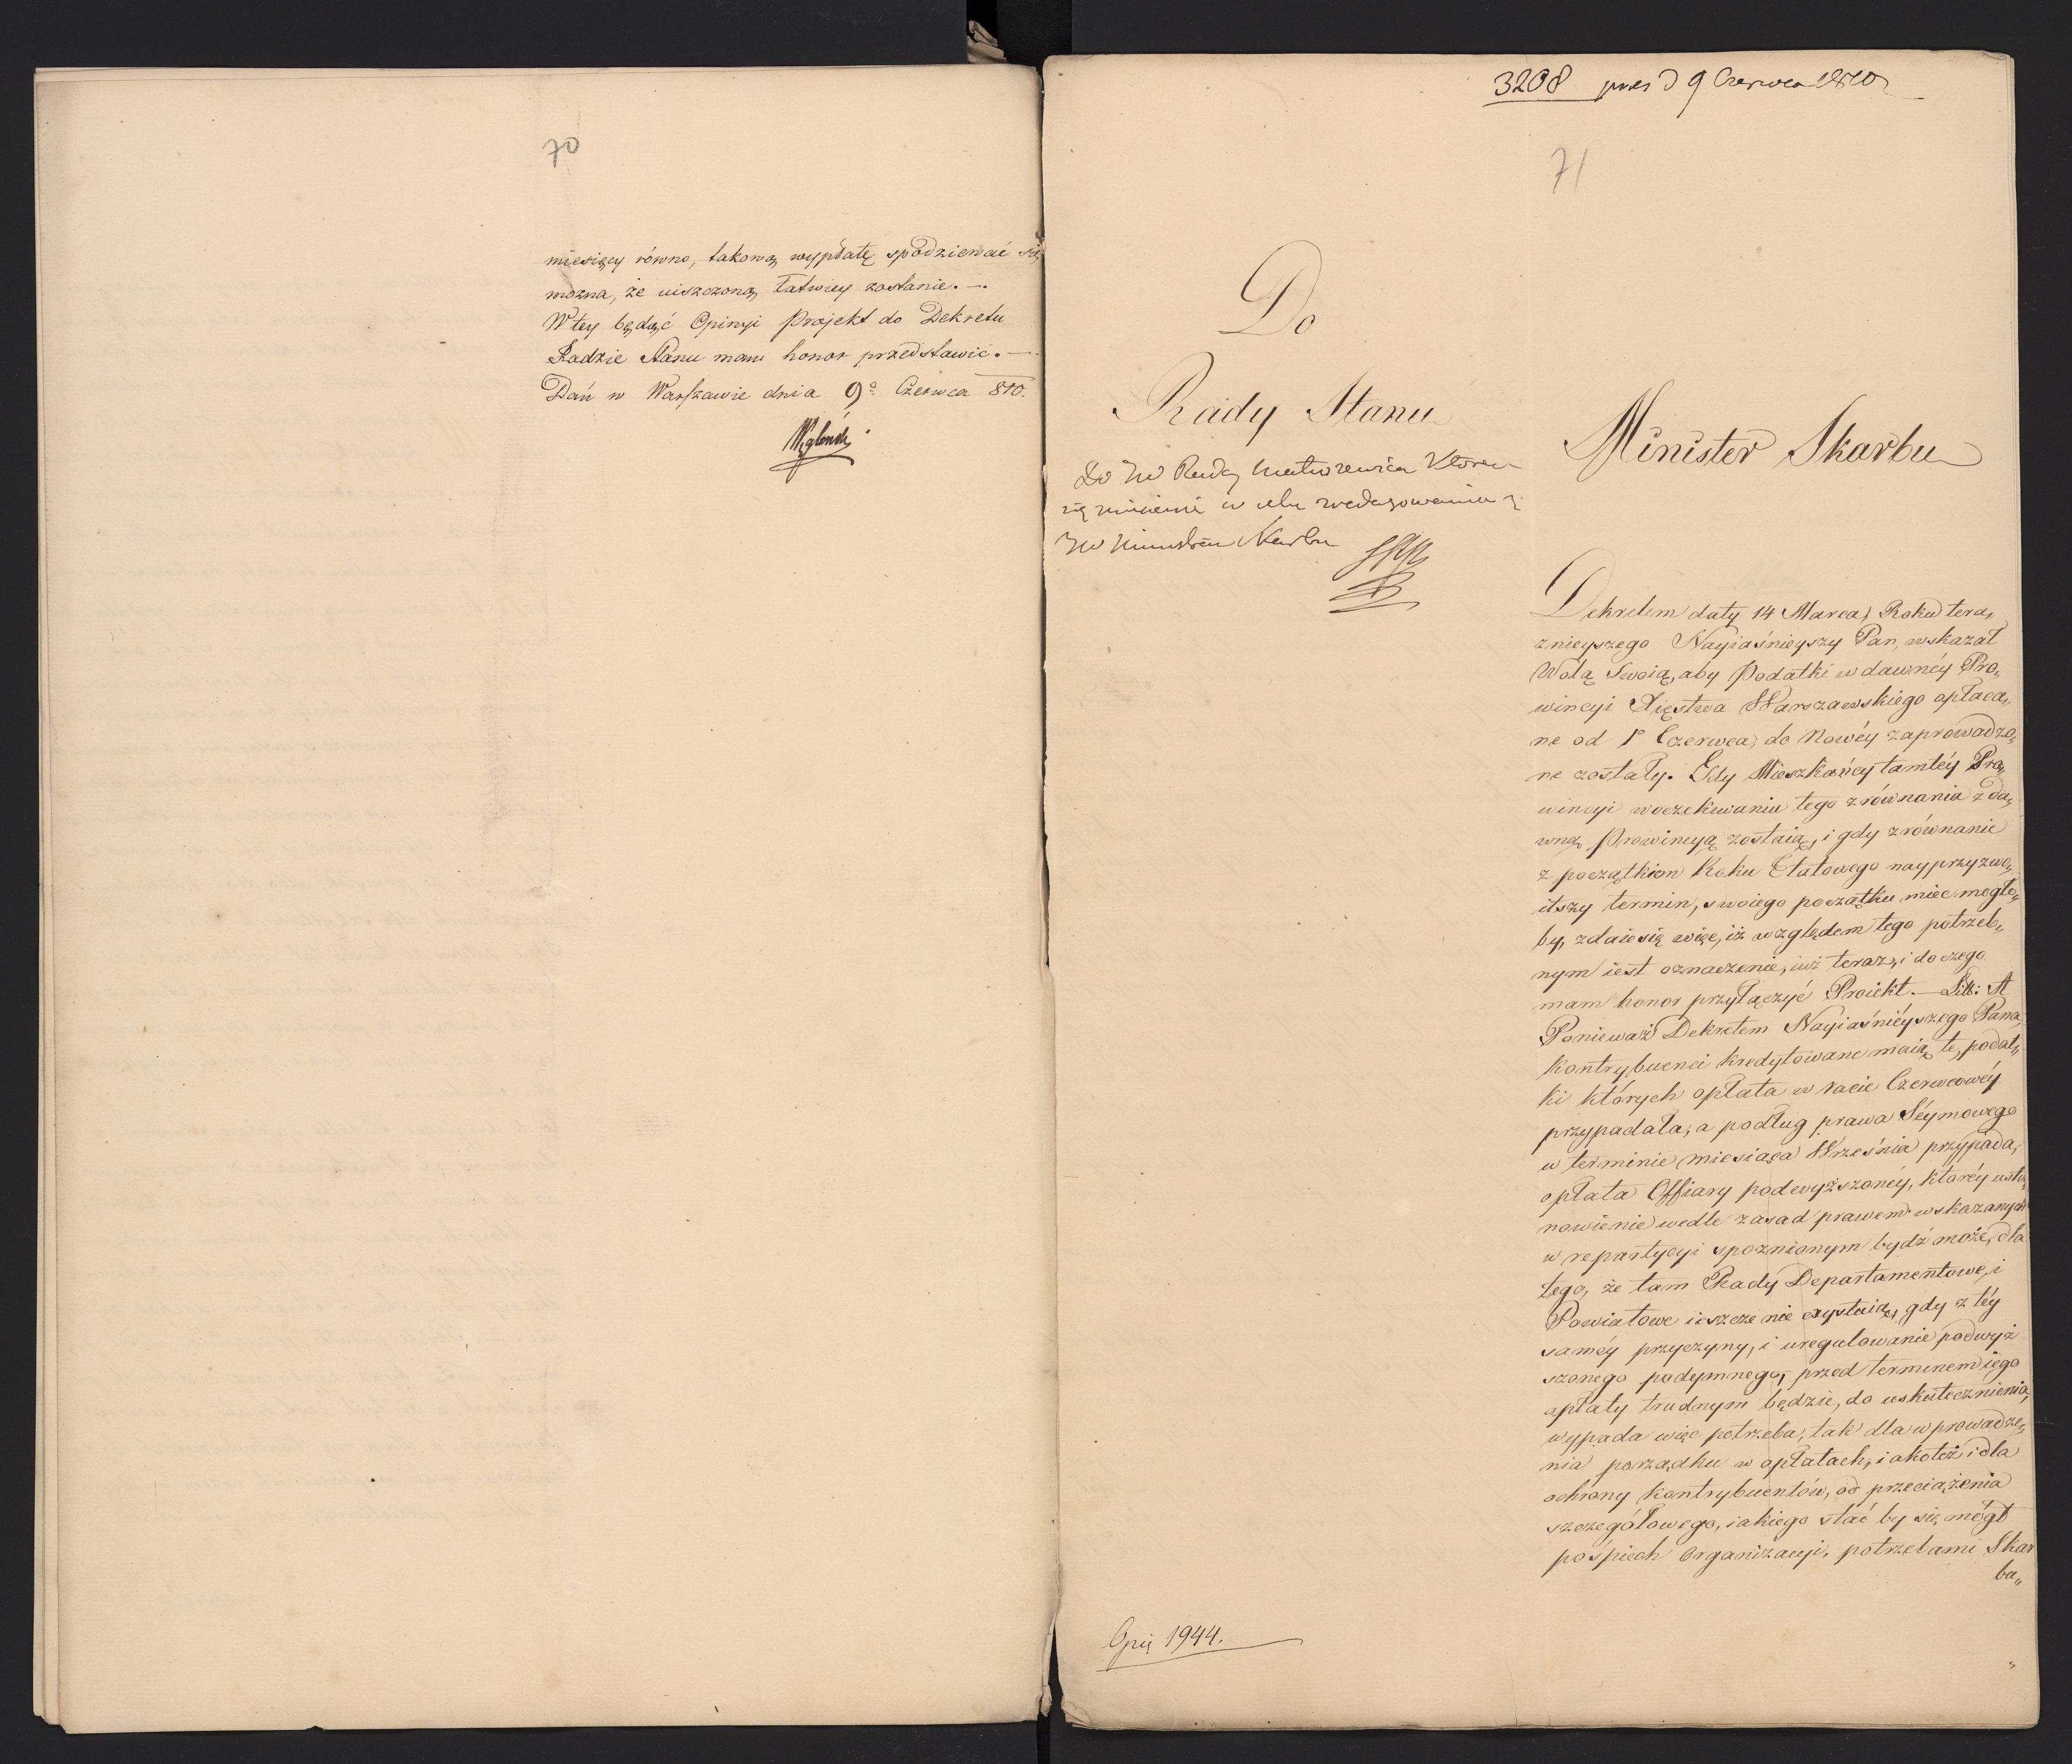 70
miesięcy równo, takową wypłatę spodziewać się
można, że uiszczoną łatwiey zostanie. —.
W tey będąć Opinyi Projekt do Dekretu
Radzie Stanu mam honor przedstawić. —
Dań w Warszawie dnia 9º Czerwca 810.
Węgleński
3208 pres d 9 Czerwca 1810
71
Do
Rady Stanu
Do JW Radcy Matuszewica Ktoren
się zniesie w celu zredagowania z
JW Ministrem Skarbu
Minister Skarbu
Dekretem daty 14 Marca, Roku tera„
znieyszego Nayiaśnieyszy Pan, wskazał
Wolą Swoią, aby Podatki w dawnéy Pro„
wincyi Xięstwa Warszawskiego opłaca„
ne od 1º Czerwca, do Nowéy zaprowadzo„
ne zostały. Gdy Mieszkańcy tamtéy Pro„
wincyi w oczekiwaniu tego zrównania z da„
wną Prowincyą zostaią, i gdy zrównanie
z początkiem Roku Etatowego nayprzyzwo„
itszy termin, swoiego początku miec mogło„
by, zdaie się więc, iż względem tego potrzeb„
nym iest oznaczenie, iuż teraz, i do czego
mam honor przyłączyć Proiekt. — Litt: A
Ponieważ Dekretem Nayiaśniéyszego Pana,
Kontrybuenci kredytowane maią te, podat„
ki których opłata w racie Czerwcowéy
przypadała, a podług prawa Séymowego
w terminie miesiąca Września przypada,
opłata Offiary podwyższonéy, któréy usta„
nowienie wedle zasad prawem wskazanych
w repartycyi spoznionym bydź może, dla
tego, że tam Rady Departamentowe, i
Powiatowe ieszcze nie exystaią, gdy z téy
saméy przyczyny, i uregulowanie podwyż
szonego podymnego, przed terminem iego
opłaty trudnym będzie, do uskutecznienia,
wypada więc potrzeba, tak dla wprowadze„
nia porządku w opłatach, iakoteż i dla
ochrony kontrybuentów, od przeciążenia
szczegółowego, iakiego stać by się mógł
pośpiech Organizacyi, potrzebami Skar
ba„
1944.